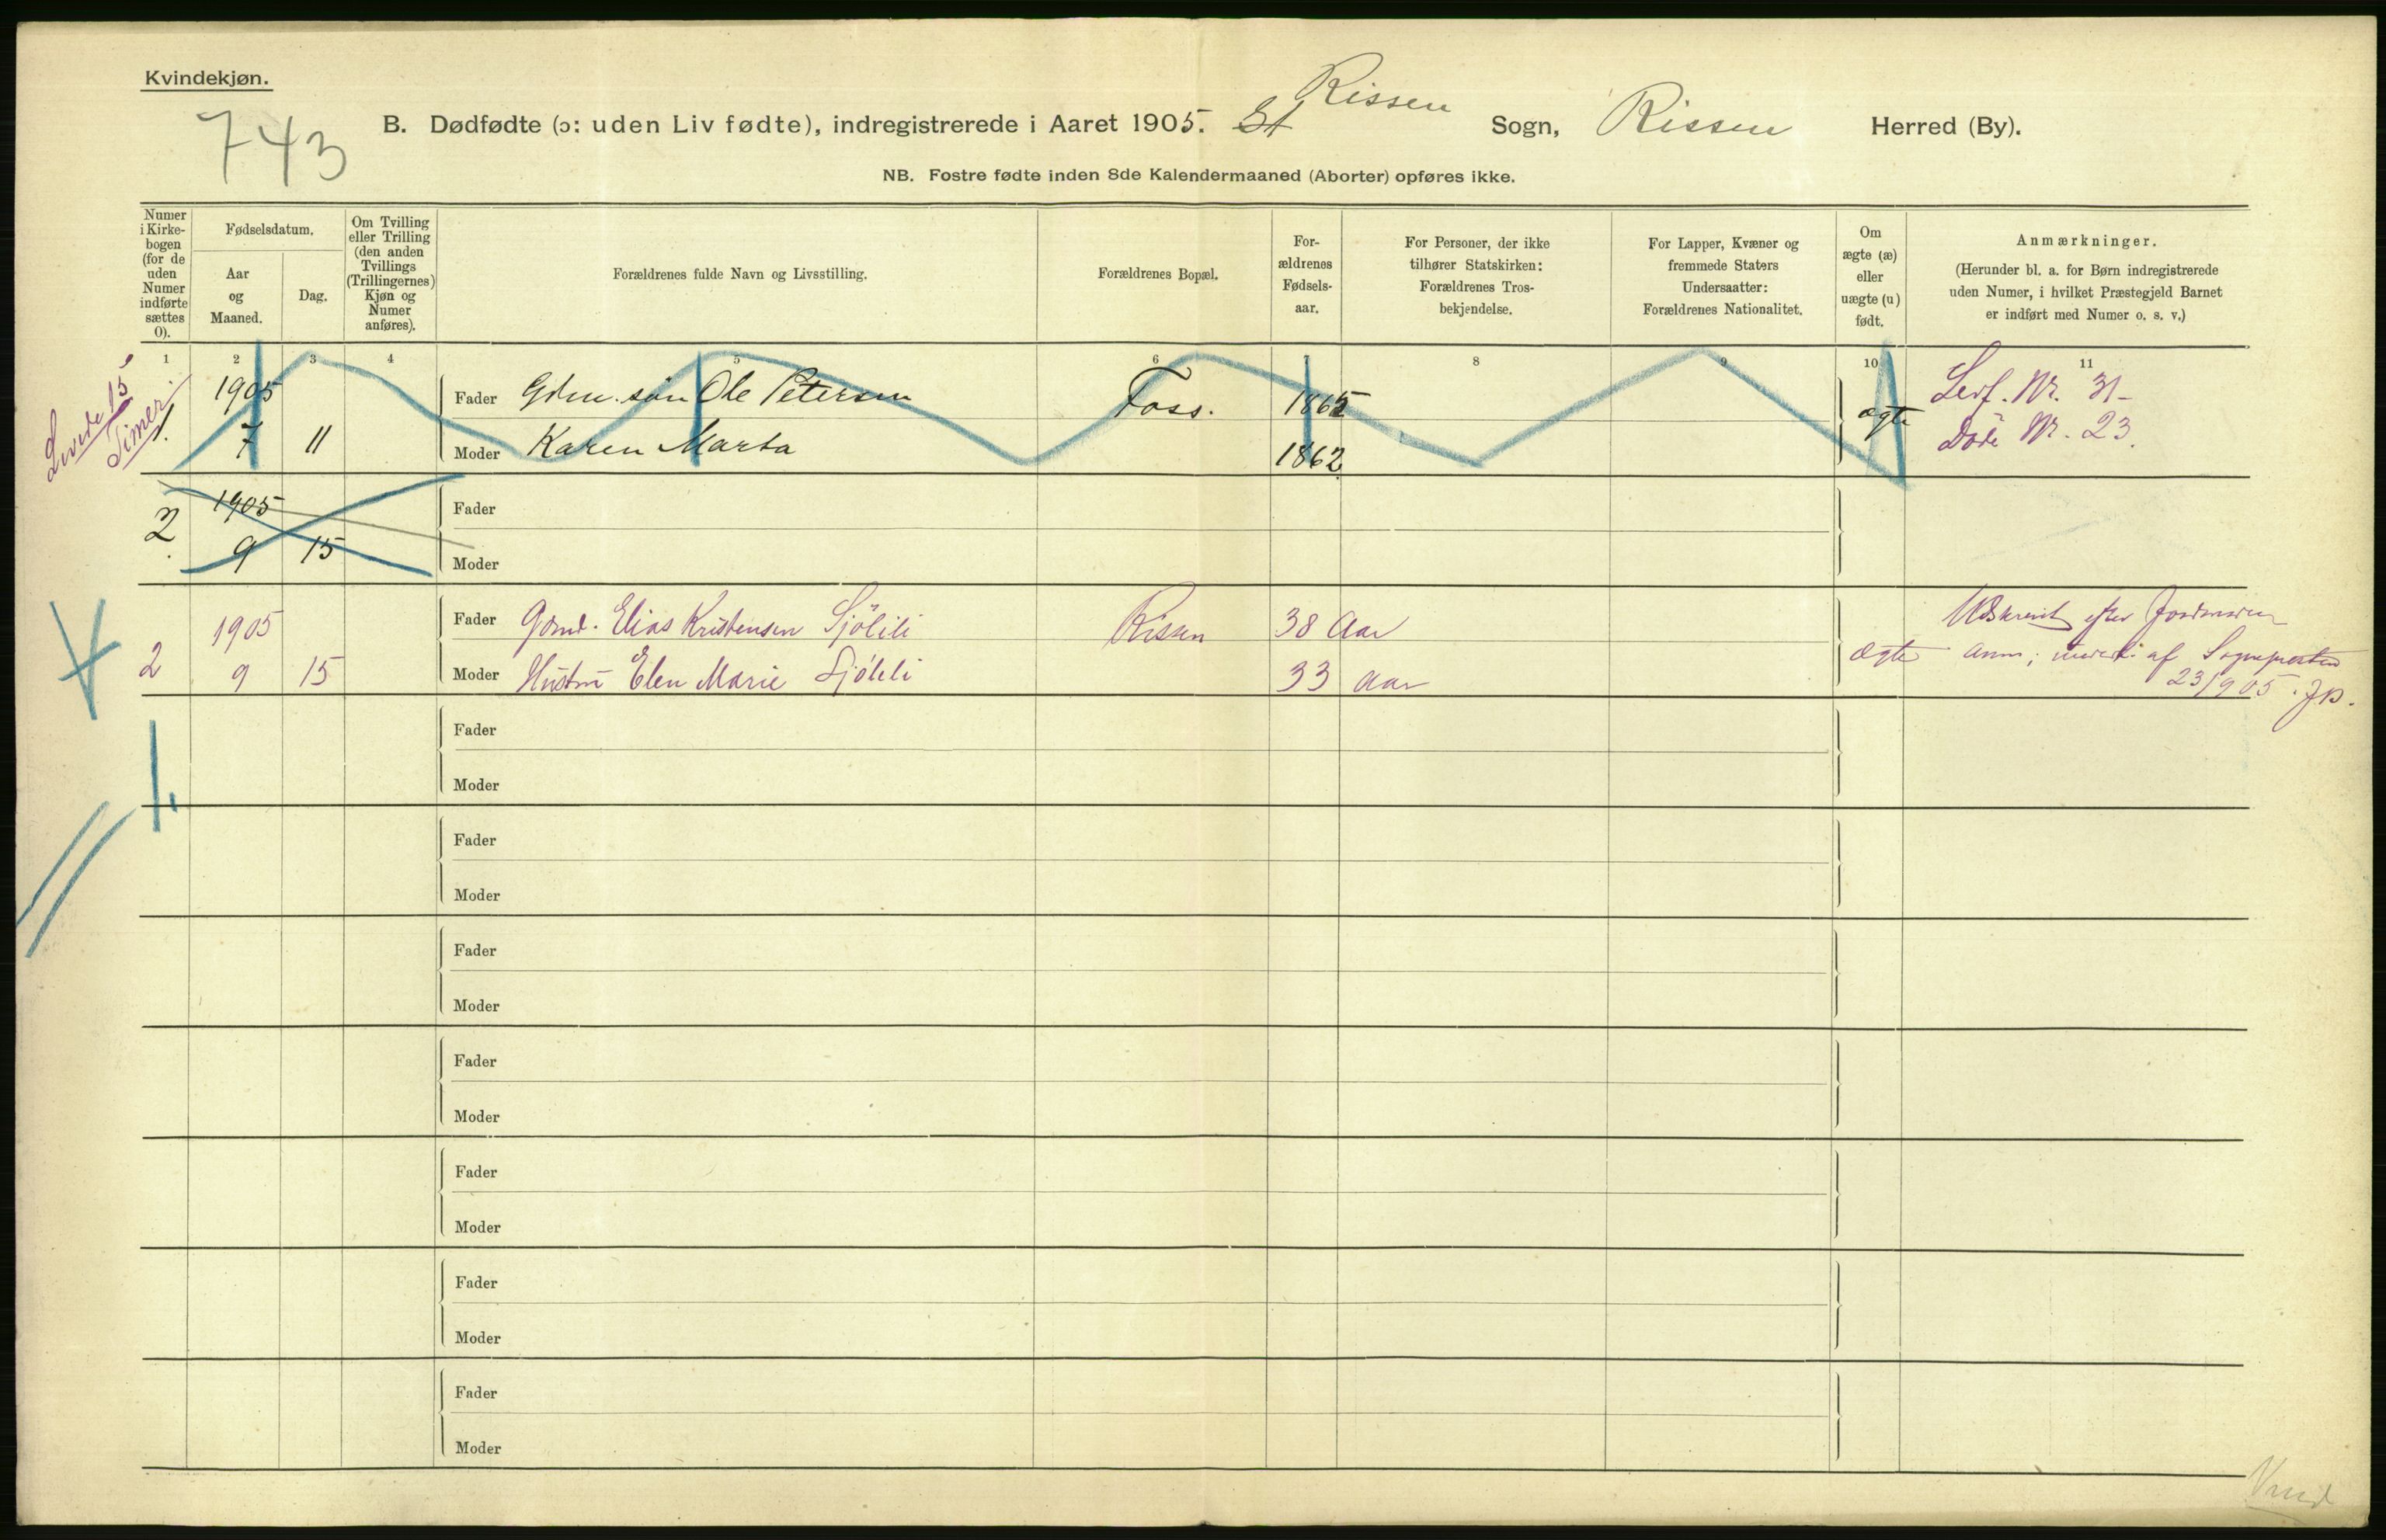 Kvindekjøn.
743
B. Dødfødte (ɔ: uden Liv fødte), indregistrerede i Aaret 1905. St Rissen Sogn, Rissen Herred (By).
NB. Fostre fødte inden 8de Kalendermaaned (Aborter) opføres ikke.
Numer i Kirke-bogen (for de uden Numer indførte sættes 0).
Fødselsdatum.
Aar og Maaned.
Dag.
Om Tvilling eller Trilling (den anden Tvillings (Trillingernes) Kjøn og Numer anføres).
Forældrenes fulde Navn og Livsstilling.
Forældrenes Bopæl.
For-ældrenes Fødsels-aar.
For Personer, der ikke tilhører Statskirken: Forældrenes Tros-bekjendelse.
For Lapper, Kvæner og fremmede Staters Undersaatter: Forældrenes Nationalitet.
Om ægte (æ) eller uægte (u) født.
Anmærkninger.
(Herunder bl. a. for Børn indregistrerede uden Numer, i hvilket Præstegjeld Barnet er indført med Numer o. s. v.)
1 2 3 4 5 6 7 8 9 10 11
Levede 15 Timer
1. 1905 Fader Gdm. søn Ole Petersen Foss. 1865 ægte Levf. Nr. 31-
7 11 Moder Karen Marta 1862 Døde Nr. 23.
2. 1905 Fader
9 15 Moder
1905 Fader Gdmd. Elias Kristensen Sjölili Rissen 38 Aar Udskrevet efter
2 9 15 Moder Hustru Elen Marie Sjölili 33 Aar ægte af Sognepresten
23/9 05.
Fader
Moder
Fader
Moder
Fader
Moder
Fader
Moder
Fader
Moder
Fader
Moder
Fader
Moder